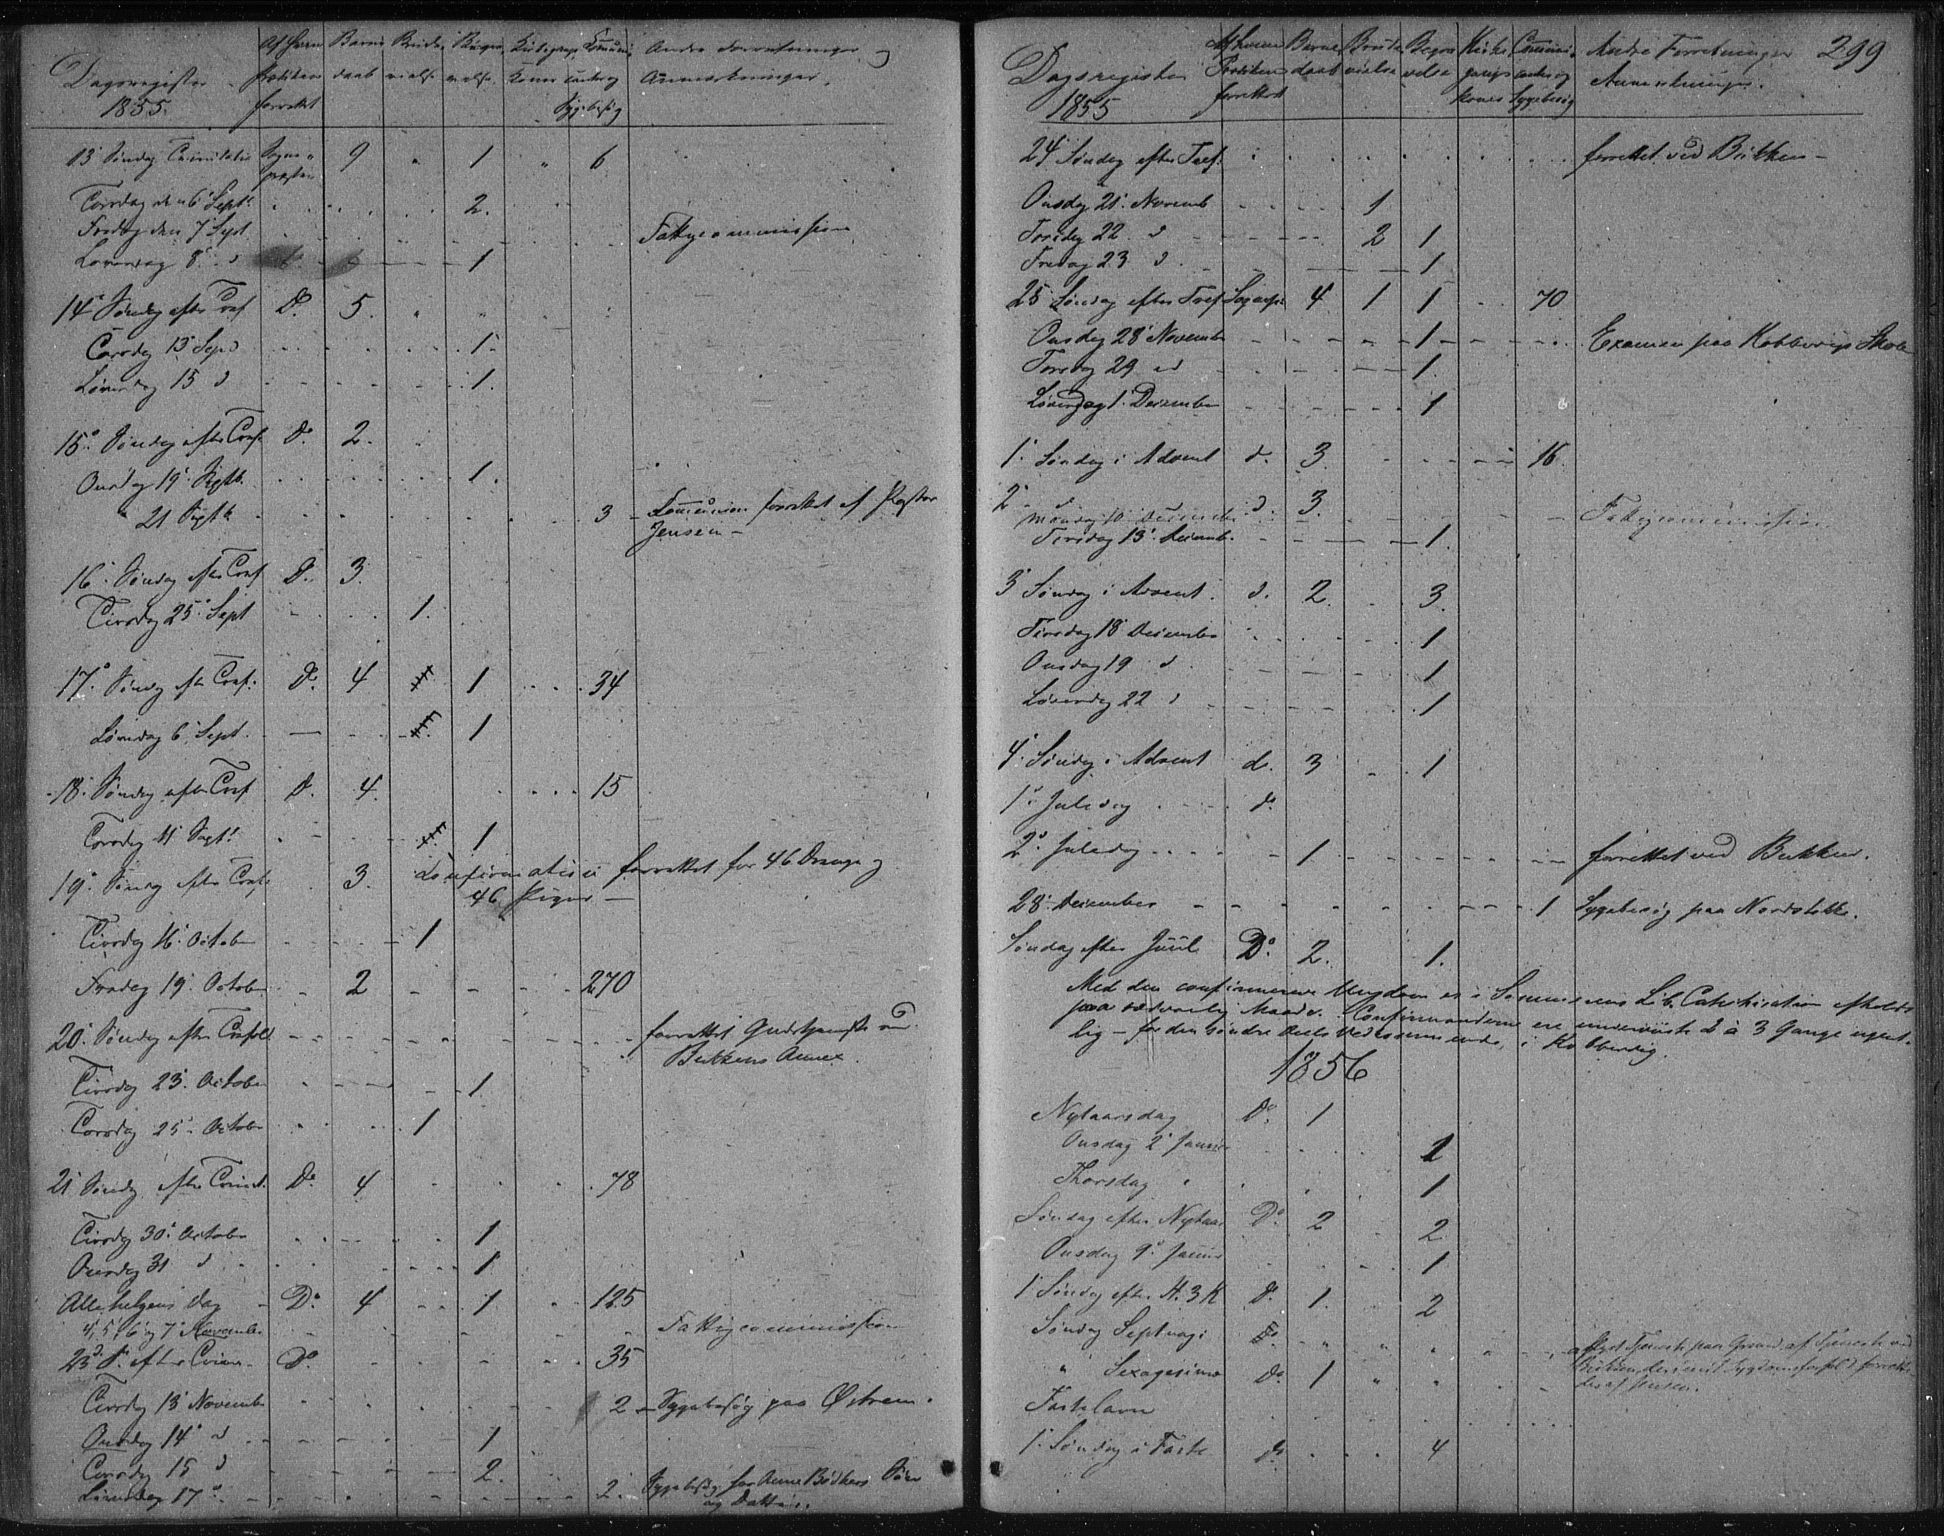 Dagsregister
1855.
Af hvem Prædiken forrettet
Barne daab
Brude vielse
Begra velse
Kirkegangs Koner
Communi canter og Sygebesøg
Andre Forretninger og Anmærkninger.
13 Søndag Trinitatis Sogne præsten 9 " 1 " 6
Torsdag den 6 Sept. 2.
Fredag den 7 Sept Fattigcommission
Løverdag 8 d 1
14 Søndag efter Tref D. 5.
Torsdag 13 Sept 1.
Løverdag 15 d 1.
15. Søndag efter Tref. D. 2.
Onsdag 19 Septb. 1.
21 Septb 3 Communion forrettet af Pastor
Jensen –
16. Søndag efter Tref D. 3.
Tirsdag 25. Sept 1.
17. Søndag efter Tref. D. 4 1 34
Løverdag 6 Sept. 1
18. Søndag efter Tref D. 4. 15
Torsdag 11 Sept. 1
19. Søndag efter Tref. 3. Confirmation forrettet for 46 Drenge og
46 Piger –
Tirsdag 16. October 1
Fredag 19. October 2 270
20. Søndag efter Trefold forrettet Gudstjeneste ved
Bukkens Annex.
Tirsdag 23. October 1
Torsdag 25. October 1
21 Søndag efter Trinit. D. 4 78
Tirsdag 30. October 1
Onsdag 31 d 1
Allehelgens dag D. 4 1 125
4, 5, 6 og 7 November Fattigcommission
23 S. efter Trin. D. 35
Tirsdag 13 November 2 Sygebesøg paa Østrem.
Onsdag 14 d 1
Torsdag 15 d 2.
Løverdag 17 2. Sygebesøg for Anne Bødkers Søn
og Datter.
299
Dagsregister
1855
Af hvem Prædiken forrettet
Barne daab
Brude vielse
Begra velse
Kirke gangs Koner
Communi canter og Sygebesøg
Andre Forretninger
Anmerkninger.
24 Søndag efter Tref. forrettet ved Bukken –
Onsdag 21. Novemb 1
Torsdag 22 d 2 1
Fredag 23 d 1
25 Søndag efter Tref Sognepr 4 1 1 70
Onsdag 28 November 1 Examen paa Kobbervigs Skole
Torsdag 29 d 1.
Løverdag 1. December 1
1. Søndag i Advent d. 3. 16.
2 d d. 3.
Mandag 10 December Fattigcommission
Torsdag 13. Decemb. 1.
3 Søndag i Advent. d. 2. 3.
Tirsdag 18 December 1
Onsdag 19 d 1
Løverdag 22 d 1
4. Søndag i Advent d. 3 1
1. Juledag d.
2. Juledag 1 forrettet ved Bukken.
28. December 1 Sygebesøg paa Nordstokke.
Søndag efter Juul D. 2. 1.
Med den confirmerede Ungdom er i Sommerens Løb Catechisation afholdt
paa sædvanlig Maade. Confirmanderne ere underviiste 2 à 3 Gange ugent-
lig – for den søndre Deels Vedkommende, i Kobbervig.
1856
Nytaarsdag D. 1
Onsdag 2 Januar 1
Thorsdag 1
Søndag efter Nytaar D. 2 2
Onsdag 9. Januar 1
1 Søndag efter H. 3 K D. 1. 2
Søndag Septuagi
" Sexagesima D. 1
Fastelavn
1. Søndag i Faste D. 4